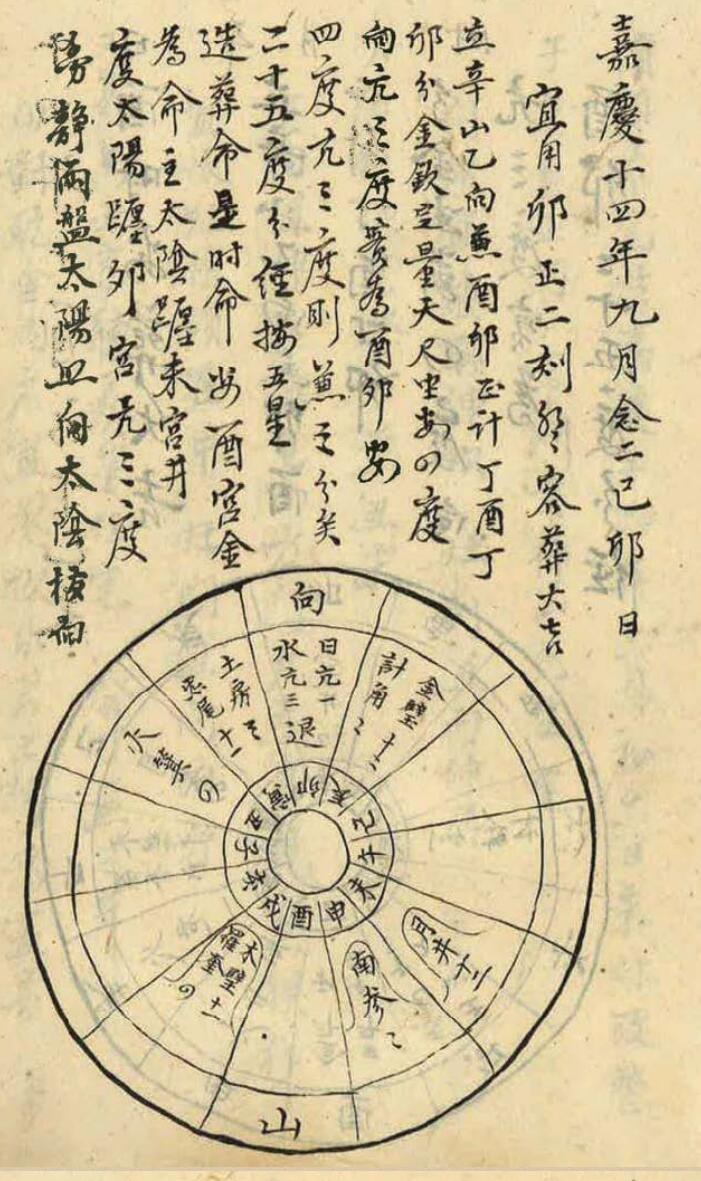 嘉慶十四年九月念二己卯日
宜用卯正二刻登容葬大吉
立辛山乙向兼酉卯正計丁酉丁
卯分金欽定量天尺坐昴四度
向亢三度實為酉卯安
四度亢三度則兼三分矣
二十五度分經按五星
造葬命是时命安酉宮金
為命主太陰躔未宮井
度太陽躔卯宮亢三度
静兩盤太陽且向太陰
向
金壁十二
計角二
日亢一
水亢三退
土房
尾十一
火箕四
卯
寅
丑
子
亥
戌
酉
申
未
午
巳
辰
月井十二
南参二
木壁十一
羅奎四
山